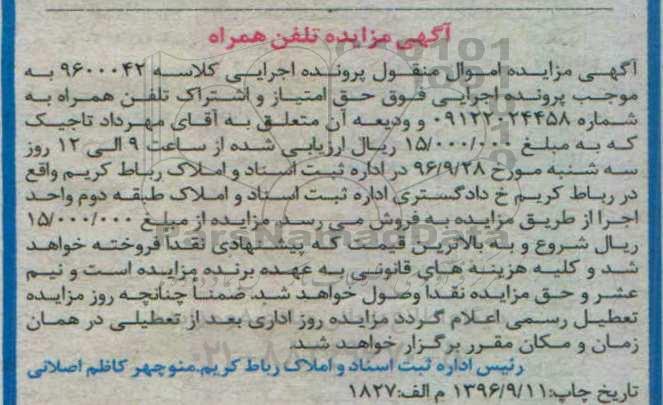 آگهی مزایده تلفن همراه
آگهی مزایده اموال منقول پرونده اجرایی کلاسه ۹۶۰۰۰۴۲ به
موجب پرونده اجرایی فوق حق امتیاز و اشتراک تلفن همراه به
شماره ۰۹۱۲۲۰۲۴۴۵۸ و ودیعه آن متعلق به آقای مهرداد تاجیک
که به مبلغ ۱۵/۰۰۰/۰۰۰ ریال ارزیابی شده از ساعت ۹ الی ۱۲ روز
سه شنبه مورخ ۹۶/۹/۲۸ در اداره ثبت اسناد و املاک رباط کریم واقع
در رباط کریم خ دادگستری اداره ثبت اسناد و املاک طبقه دوم واحد
اجرا از طریق مزایده به فروش می رسد. مزایده از مبلغ ۱۵/۰۰۰/۰۰۰
ریال شروع و به بالاترین قیمت که پیشنهادی نقدا فروخته خواهد
شد و کلیه هزینه های قانونی به عهده برنده مزایده است و نیم
عشر و حق مزایده نقدا وصول خواهد شد. ضمنا چنانچه روز مزایده
تعطیل رسمی اعلام گردد مزایده روز اداری بعد از تعطیلی در همان
زمان و مکان مقرر برگزار خواهد شد.
رئیس اداره ثبت اسناد و املاک رباط کریم.منوچهر کاظم اصلانی
تاریخ چاپ:۱۳۹۶/۹/۱۱ م الف:۱۸۲۷
ParsNamadData